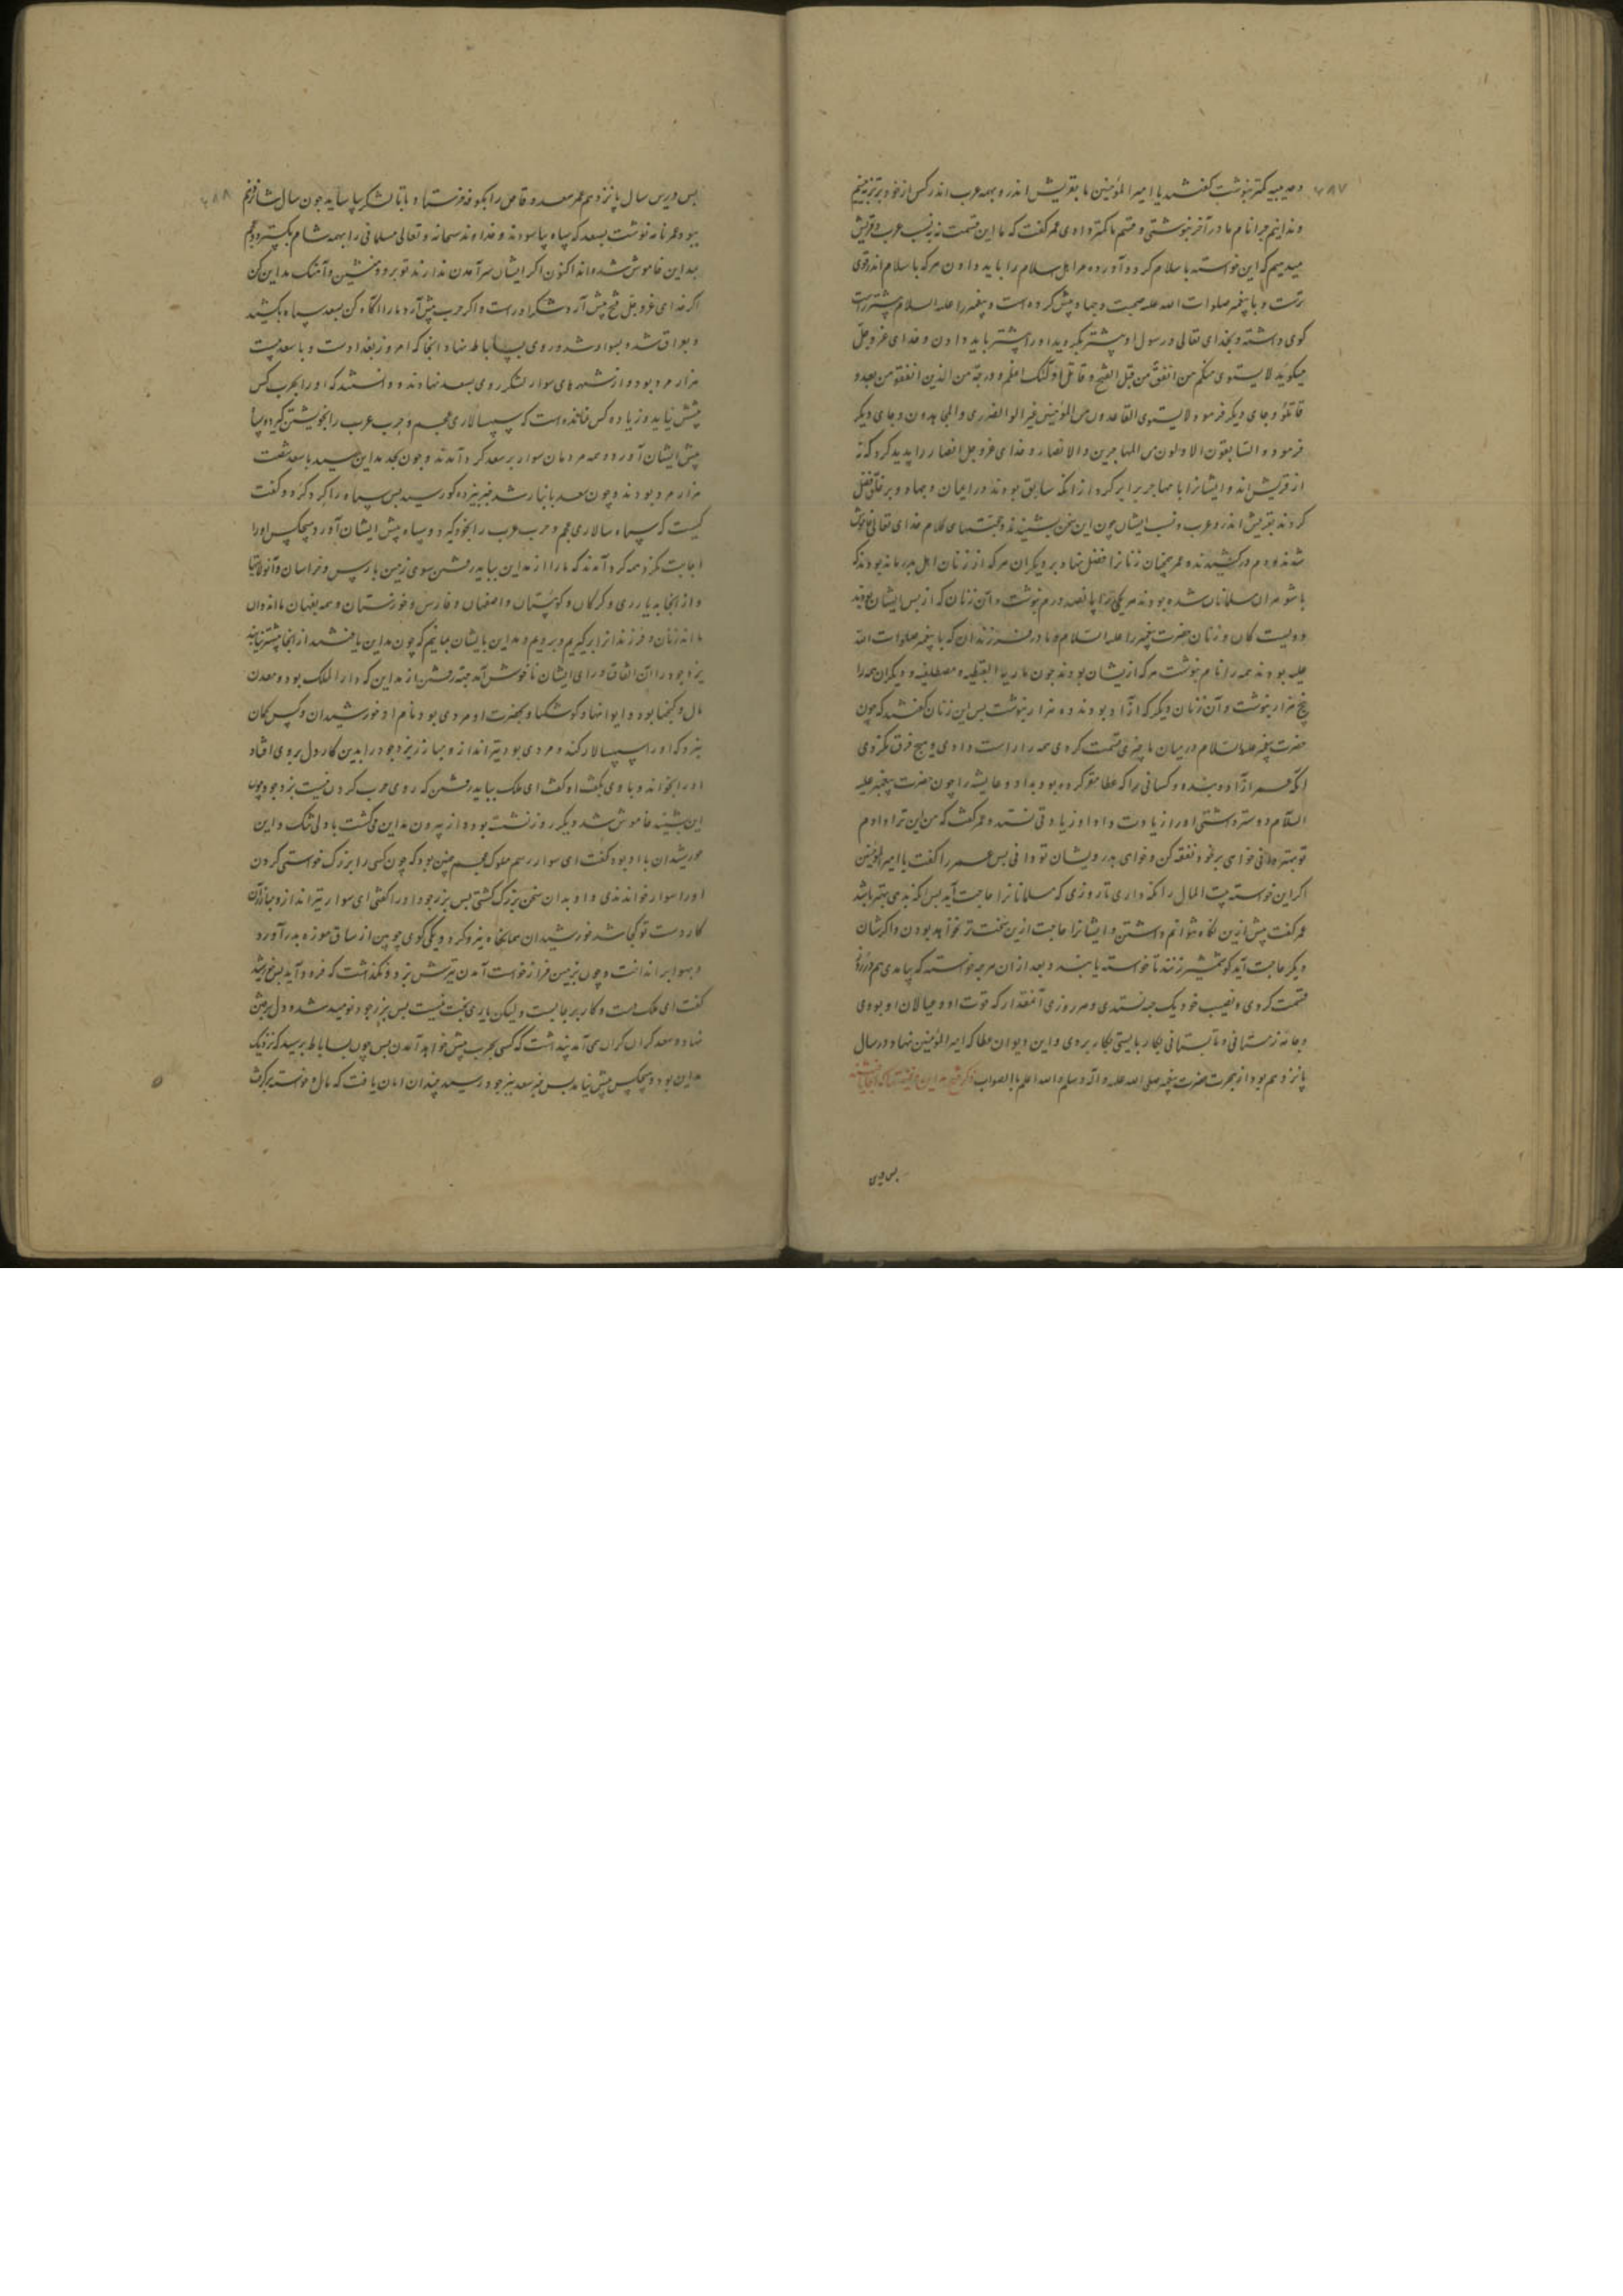 ۷۸۷
و مدینه کمتر نبشت کفشند یا امیر المؤمنین ما بقریش اندر و بهمه عرب اندر کس از خود برتر نه بینیم
و ندانیم چرا نام ما در آخر نبوشتی و قسم ما کمتر دادی عمر کفت که ما این قسمت نه بنسب عرب و قریش
میدهیم که این خواسته باسلام کرد آورده مر اهل اسلام را باید دادن هر که باسلام اندر قوی
ترست و با پیغمبر صلوات الله علیه صحبت و جهاد پیش کرده است و پیغمبر را علیه السلام بیشتر راست
کوی داشته و بخدای تعالی و رسول او پیشتر بگرویده او را بیشتر باید دادن و خدای عز و جل
میکوید لا یستوی منکم من انفق من قبل الفتح و قاتل اولئک اعظم درجة من الذین انفقو من بعد و
قاتلو و جای دیکر فرمود لا یستوی القاعدون من المؤمنین غیر اولو الضرری و المجاهدون و جای دیکر
فرموده السابقون الاولون من المهاجرین و الانصار و خدای عز و جل انصار را پدید کرد که نه
از قریش اند و ایشانرا با مهاجر برابر کرد از انکه سابق بودند در ایمان و جهاد و بر خلق فضل
کردند بقریش اندر و عرب و نسب ایشان چون این سخن بشنیدند و حجتهای کلام خدای تعالی خاموش
شدند و دم در کشیدند و عمر همچنان زنانرا فضل نهاد بر دیکران هر که از زنان اهل بدر مانده بودند که
با شوهران مسلمانان شده بودند هر یکی را پانصد درم نبوشت و آن زنان که از پس ایشان بودند
دویست کان و زنان حضرت پیغمبر را علیه السلام و مادر فرزندان که با پیغمبر صلوات الله
علیه بودند همه را نام نبوشت هر که ازیشان بودند چون ماریه القبطیه و مصطلقیه و دیکران همه را
پنج هزار نبوشت و آن زنان دیکر که آزاد بودند ده هزار نبوشت پس این زنان کفشند که چون
حضرت پیغمبر علیه السلام در میان ما چیزی قسمت کردی همه را راست دادی و هیچ فرق نکردی
السلام دوستر داشتی او را زیادت داد او زیادتی نستد و عمر کفت که من این ترا دادم
تو بهتر دانی خواهی بر خود نفقه کن و خواهی بدرویشان تو دانی پس عمر را کفت یا امیر المؤمنین
اکر این خواسته بیت المال را نکه داری تا روزی که مسلمانانرا حاجت آید پس انکه بدهی بهتر باشد
عمر کفت پیش ازین نکاه نتوانم داشتن و ایشانرا حاجت ازین سخت تر نخواهد بودن و اکر شان
دیکر حاجت آید کو شمشیر زنند تا خواسته یابند و بعد از ان هر چه خواسته که بیامدی هم در روز
قسمت کردی و نصیب خود یک حبه نستدی و هر روزی آنمقدار که قوت او و عیالان او بودی
و جامه زمستانی و تابستانی بکار بایستی بکار بردی و این دیوان عطا که امیر المؤمنین نهاد در سال
پانزدهم بود از هجرت حضرت پیغمبر صلی الله علیه و آله و سلم و الله اعلم بالصواب
پس درین
۷۸۸
پس درین سال پانزدهم عمر سعد وقاص را بکوفه فرستاد با تا لشکر بیاساید چون سال شانزدهم
ببود عمر نامه نوشت بسعد که سپاه بیاسودند و خداوند سبحانه و تعالی مسلمانی را بهمه شام بکسترد و عجم
بمداین خاموش شده اند اکنون اکر ایشان سر آمدن ندارند تو برو و منشین و آهنک مداین کن
اکر خدای عز و جل فتح پیش آرد شکر اوراست و اکر حرب پیش آرد ما را اکاه کن سعد سپاه بکشید
و بعراق شد و بسواد شد و روی بساباط نهاد انجا که امروز بغداد است و با سعد بیست
هزار مرد بود و از شهرهای سواد لشکر روی بسعد نهادند و دانستند که او را بحرب کس
پیش نیاید و زیاده کس نمانده است که سپهسالاری عجم و حرب عرب را بخویشتن کیرد و سپاه
پیش ایشان آورد و همه مردمان سواد بر سعد کرد آمدند و چون بحد مداین رسید با سعد شصت
هزار مرد بودند و چون سعد بانبار شد خبر بیزدکرد رسید پس سپاه را کرد کرد و کفت
کیست که سپاه سالاری عجم و حرب عرب را بخود کیرد و سپاه پیش ایشان آورد هیچکس او را
اجابت نکرد همه کرد آمدند که ما را از مداین بباید رفشن سوی زمین پارس و خراسان و آنولایتها
و از انجا بدیار ری و کرکان و کوهستان و اصفهان و فارس و خوزستان و همه بفرمان ما اندوان
مال و کنجها بود و ایوانها و کوشکها و بحضرت او مردی بود نام او خورشیدان و کس کمان
نبرد که او را سپهسالار کند و مردی بود تیرانداز و مبارز یزدجود را بدین کار دل بر وی افتاد
او را بخواند و با وی بکفت او کفت ای ملک بباید رفشن که روی حرب کردن نیست یزدجود چون
این بشنید خاموش شد دیکر روز نشسته بود و از بیرون مداین می کشت با دلی تنک و این
خورشیدان با او بود کفت ای سوار رسم ملوک عجم چنین بود که چون کسی را بزرک خواستی کردن
او را سوار خواندندی و او بدان سخن بزرک کشتی پس یزدجود او را کفتی ای سوار تیرانداز و مبارز آن
کار دست تو کجا شد خورشیدان همانجاه نیزه کرد و یکی کوی چوبین از ساق موزه بدر آورد
و بهوا بر انداخت و چون بزمین فراز خواست آمدن تیرش بزد و نکذاشت که فرود آید پس خورشید
کفت ای ملک دست و کار بر جایست و لیکن یاری بخت نیست پس یزدجود نومید شد و دل بر رفتن
نهاد و سعد کران کران می آمد پنداشت که کسی بحرب پیش خواهد آمدن پس چون بساباط برسید که نزدیک
مداین بود و هیچکس پیش نیامد پس خبر سعد بیزدجود رسید چندان امان یافت که مال و خواسته بر کرفت